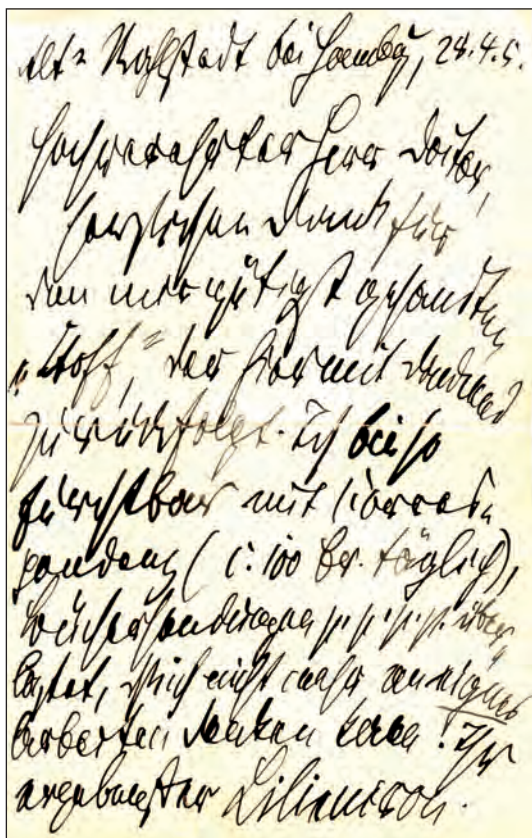 Alt-Rahlstedt bei Hamburg, 28.4.5.
Hochverehrter Herr Doktor,
herzlichen Dank für
den mir gütigst gesandten
„Stoff", der hiermit dankend
zurückfolgt. Ich bin so
furchtbar mit Corres-
pondenz (c. 100 Br. täglich),
Büchersendungen p. p. p. p. p. über-
lastet, daß ich nicht mehr an eignes
Arbeiten denken kann! Ihr
ergebenster Liliencron.